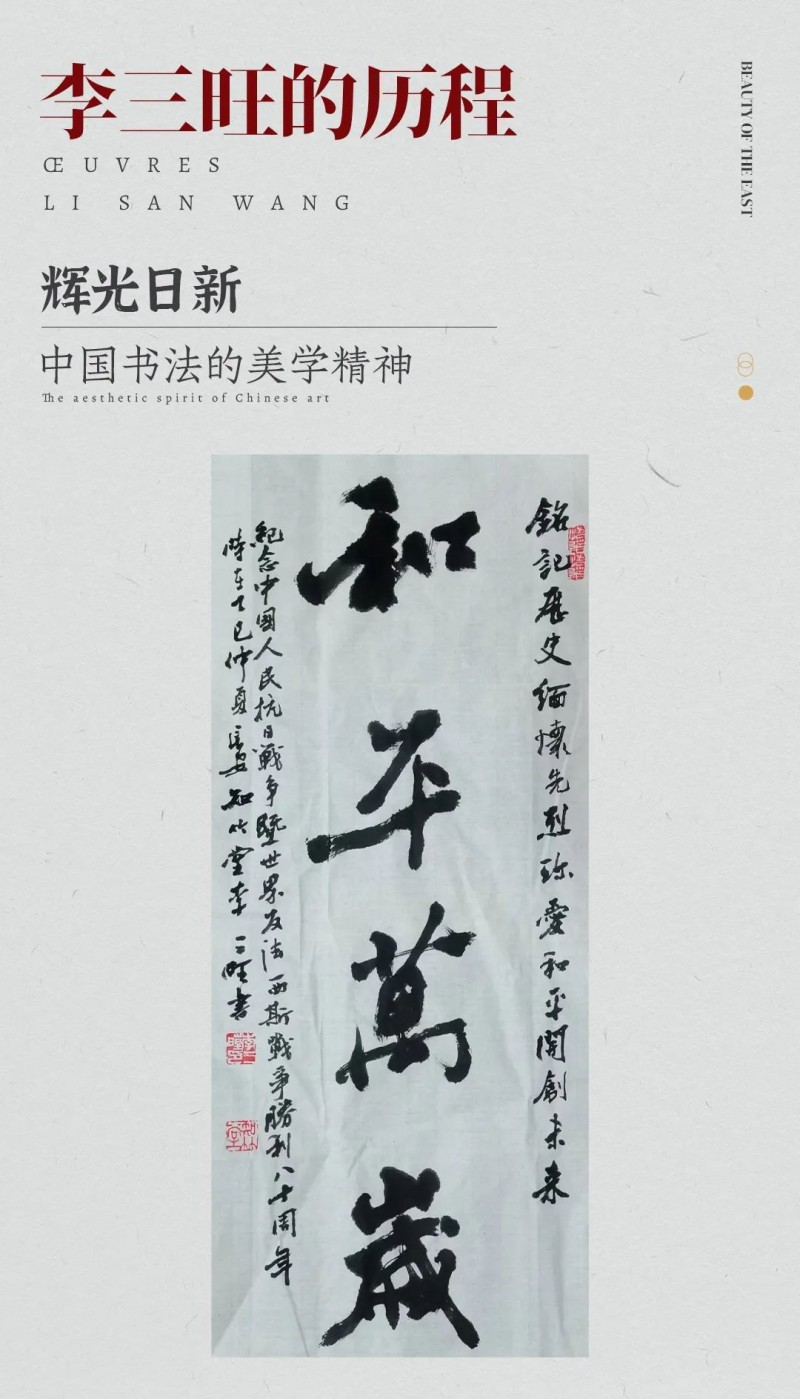 李三旺的历程
ŒUVRES
LI SAN WANG
BEAUTY OF THE EAST
辉光日新
中国书法的美学精神
The aesthetic spirit of Chinese art
銘記歷史緬懷先烈珍愛和平開創未来
和平萬歲
紀念中國人民抗日戰争暨世界反法西斯戰争勝利八十周年
時在乙巳仲夏長安知竹堂李三旺書